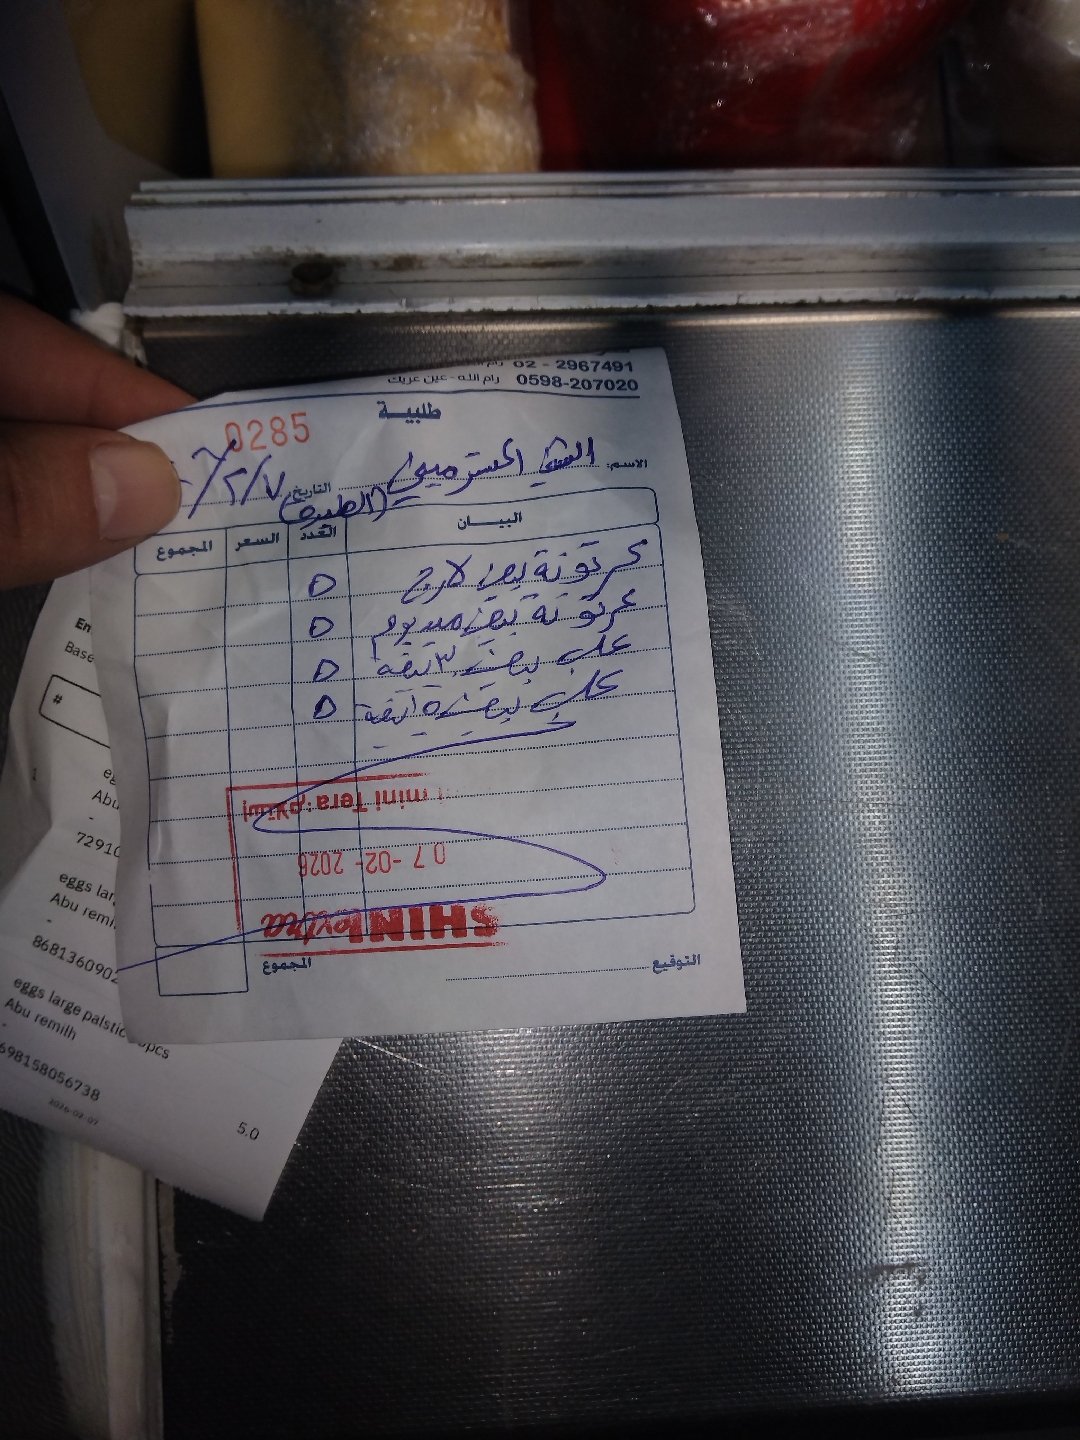 02 - 2967491
0598-207020 رام الله - عين عريك
طلبية
0285
الاسم:
التاريخ ٧/٢/
(الطيرة)
البيان العدد السعر المجموع
كرتونة بيض لارج ٥
كرتونة بيض ميديوم ٥
علب بيض ٥
علب بيض ٥
إستلام: mini Tera
07-02-2026
SHINI extra
المجموع
التوقيع
En
Base
#
1
eg
Abu
-
7291C
eggs lar
Abu remi
-
868136090
eggs large palstic pcs
Abu remilh
-
698158056738
2026-02-07
5.0